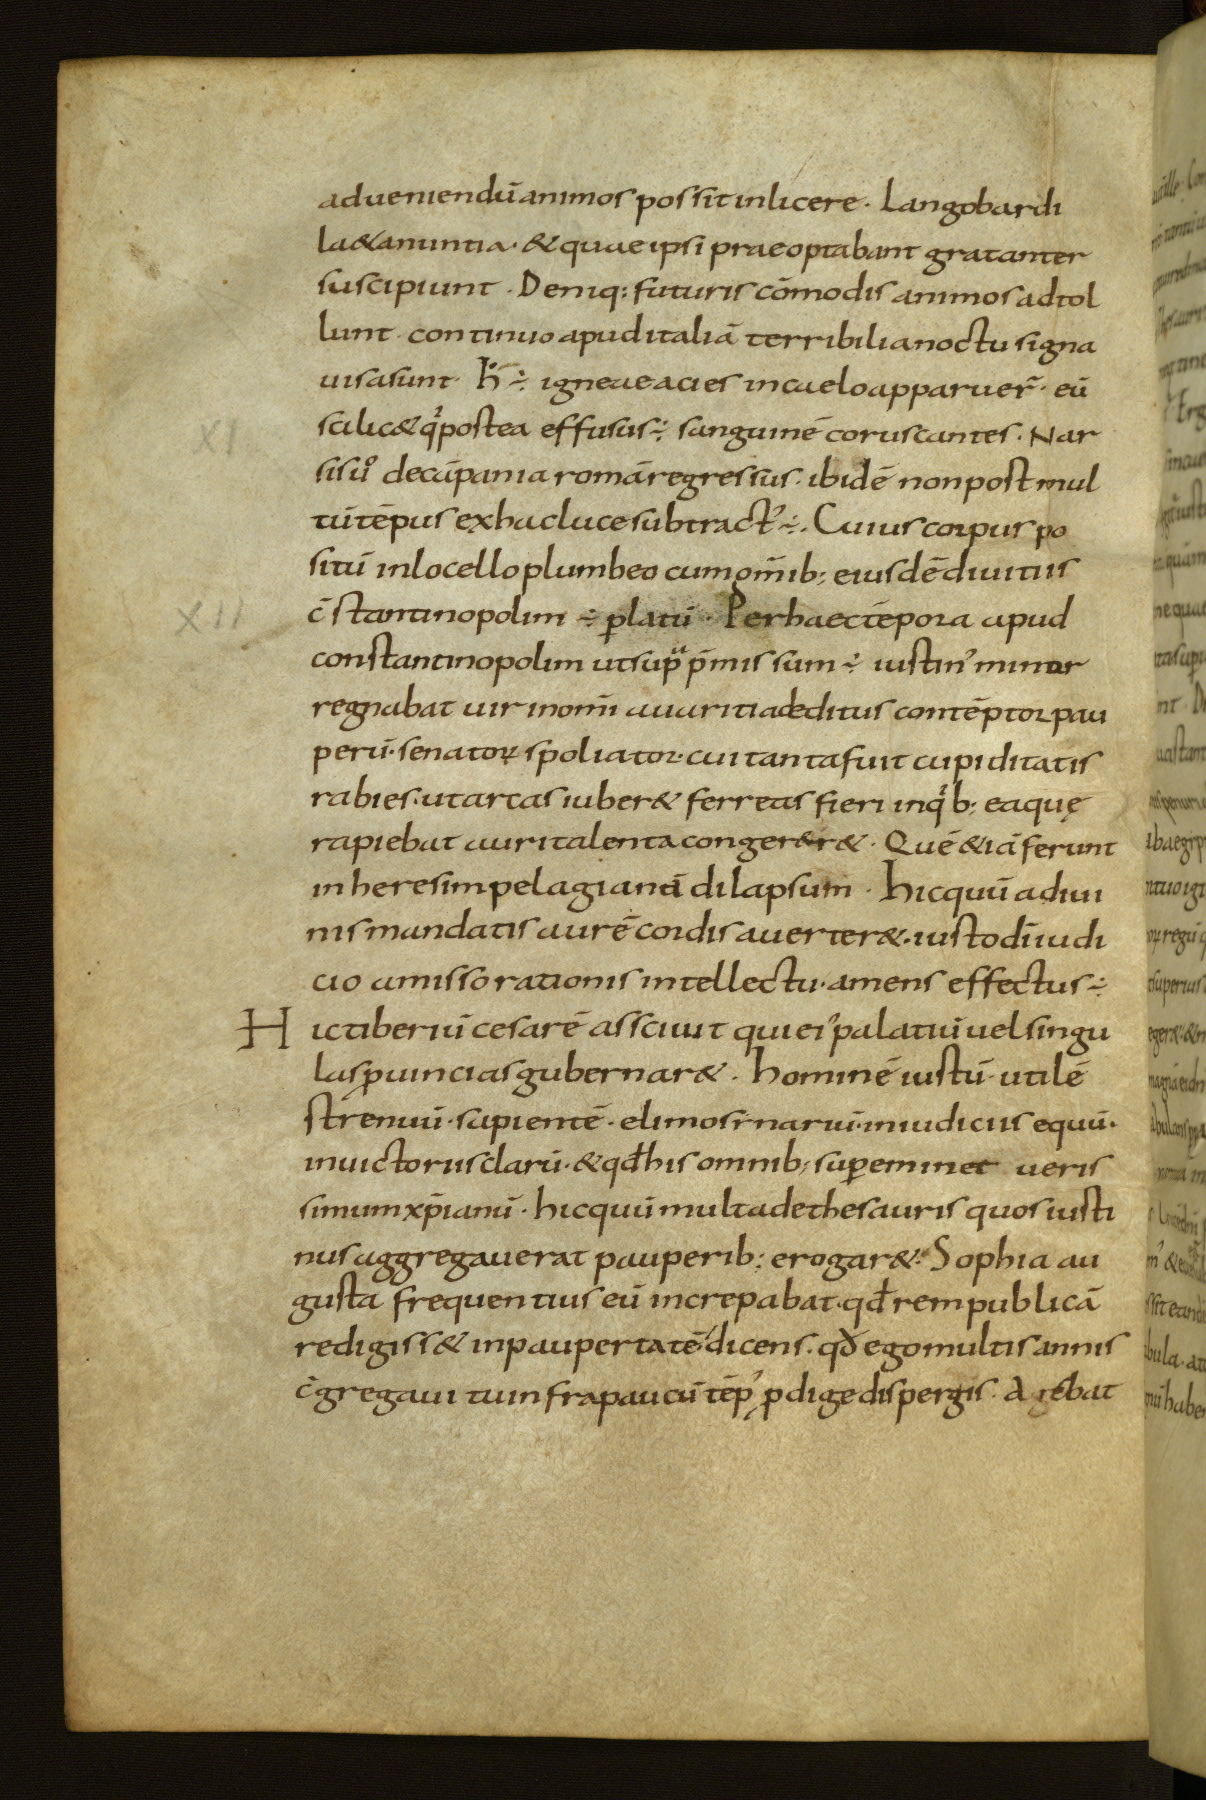 adueniendū animos possit inlicere · Langobardi
la&a nuntia · & quae ipsi praeoptabant gratanter
suscipiunt · Deniq: futuris cōmodis animos adtol
lunt · continuo apud italiā terribilia noctu signa
uisa sunt · h̄ ÷ igneae acies in caelo apparuer̄ · eū
scilic& qͥ postea effusus ÷ sanguinē coruscantes · Nar
sis uͦ de cāpania romā regressus · ibidē non post mul
tū tēpus ex hac luce subtractꝰ ÷. Cuius corpus po
sitū in locello plumbeo cum om̄ib; eiusdē diuitiis
c̄stantinopolim ÷ ꝑlatū · Per haec tēpora apud
constantinopolim ut supͣ p̄missum ÷ iustinꝰ minor
regnabat uir in om̄i auaritia deditus contēptor pau
perū · senatoꝝ spoliator · cui tanta fuit cupiditatis
rabies · ut arcas iuber& ferreas fieri in qͥb; ea quę
rapiebat auri talenta conger&r& · Quē &iā ferunt
in heresim pelagianā dilapsum · hic quū a diui
nis mandatis aurē cordis auerter& · iusto dī iudi
cio amisso rationis intellectu · amens effectus ÷
Hic tiberiū cesarē assciuit qui eiꝰ palatiū uel singu
las ꝓuincias gubernar& · hominē iustū · utilē
strenuū · sapientē · elimosinariū · in iudiciis equū ·
in uictoriis clarū · & qđ his omnib; suꝑeminet ueris
simum xp̄ianū · hic quū multa de thesauris quos iusti
nus aggregauerat pauperib; erogar& · Sophia au
gusta frequentius eū increpabat · qđ rem publicā
redigiss& in paupertatē dicens · qđ ego multis annis
c̄gregaui tu infra paucū tēpꝰ ꝓdige dispergis · Agebat
XI
XII